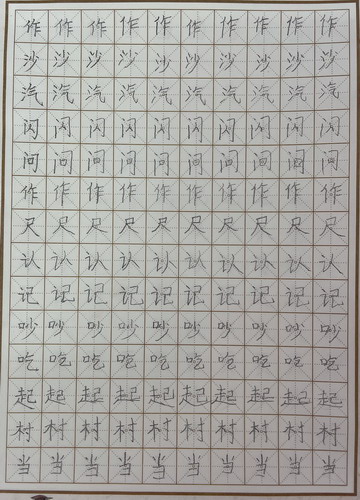 作作作作作作作作作作
沙沙沙沙沙沙沙沙沙沙
汽汽汽汽汽汽汽汽汽汽
闪闪闪闪闪闪闪闪闪闪
问问问问问问问问问问
作作作作作作作作作作
尺尺尺尺尺尺尺尺尺尺
认认认认认认认认认认
记记记记记记记记记记
吵吵吵吵吵吵吵吵吵吵
吃吃吃吃吃吃吃吃吃吃
起起起起起起起起起起
村村村村村村村村村村
当当当当当当当当当当